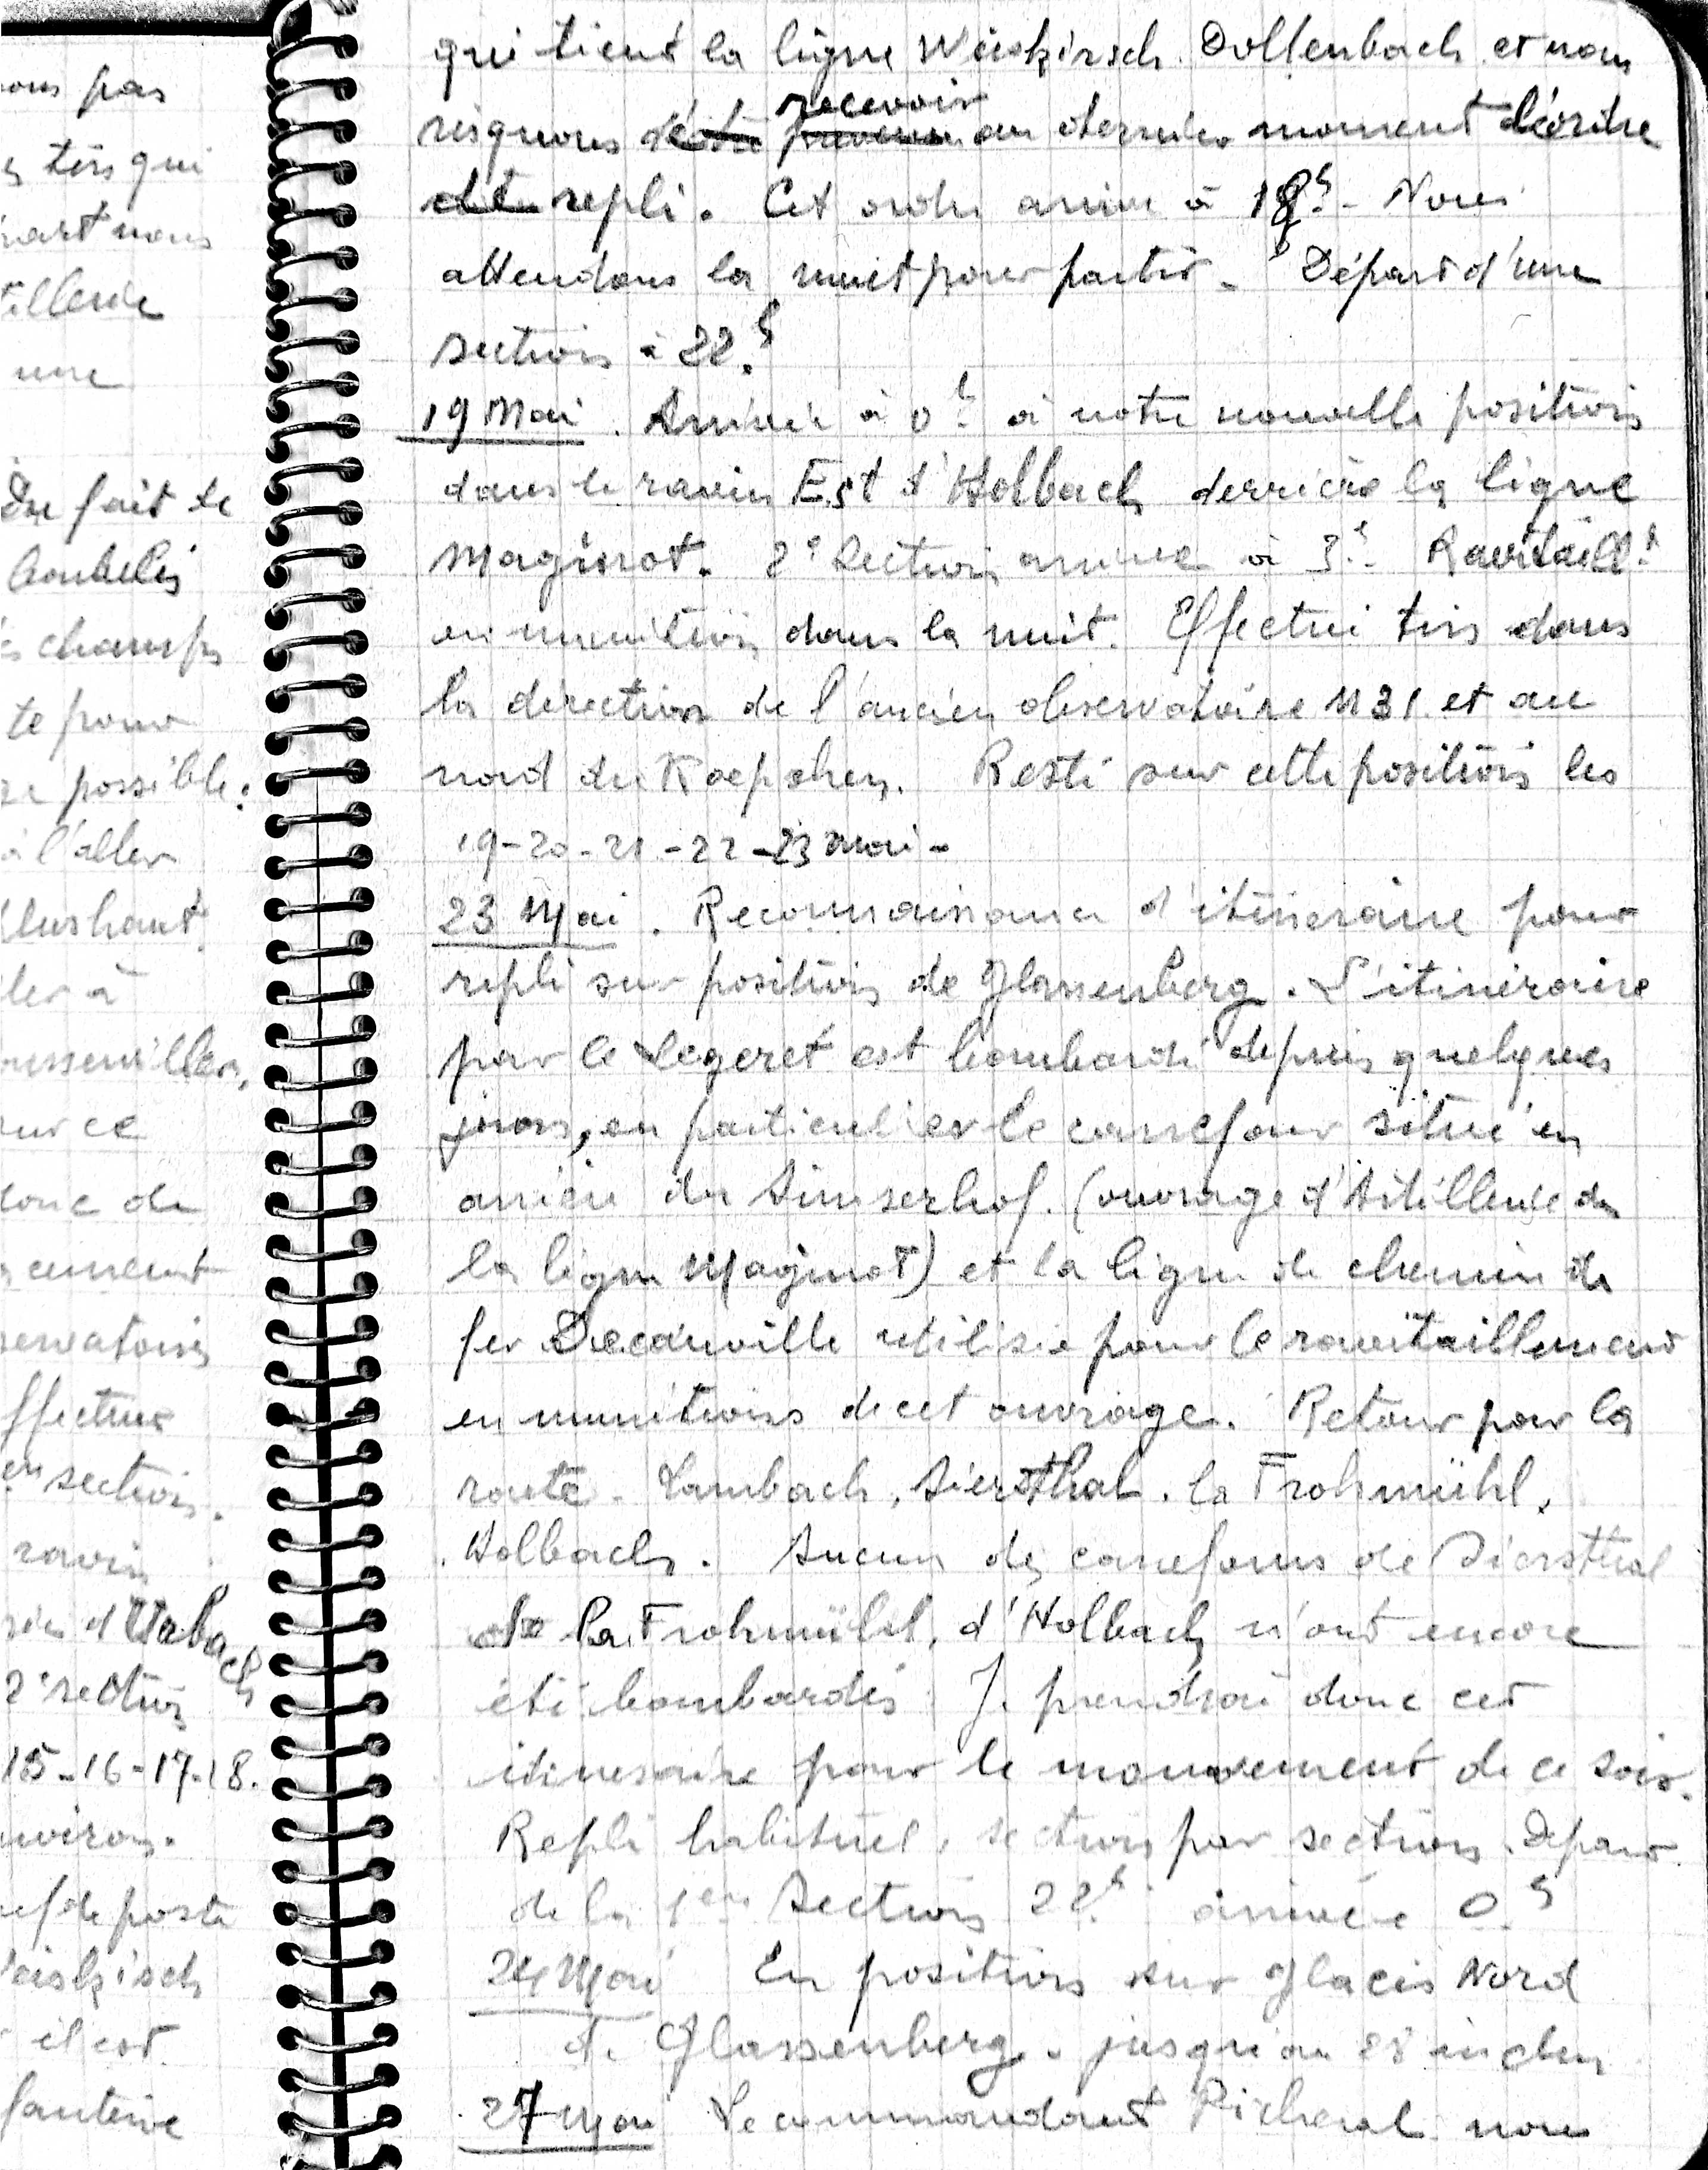 ous pas
s tirs qui
part nous
tillerie
une
Du fait de
s champs
te pour
re possible.
à l'aller
plus haut.
ler à
ousseviller,
sur ce
donc du
cement
servatoires
ffectue
en section.
ravin
d'Holbach
2e section
15-16-17-18.
nviron.
ef de poste
eiskirsch
il est
fanterie
qui tient la ligne Weiskirsch. Dollenbach et nous
recevoir
risquons d'être prévenu au dernier moment l'ordre
de repli. Cet ordre arrive à 18h. - Nous
attendons la nuit pour partir. Départ d'une
section à 22.h
19 Mai. Arrivée à 0h. à notre nouvelle position
dans le ravin Est d'Holbach derrière la ligne
Maginot. 2e Section arrive à 3.h Ravitaill.t
en munition dans la nuit. Effectué tirs dans
la direction de l'ancien observatoire N31 et au
nord du Koepchen. Resté sur cette position les
19-20-21-22-23 mai-
23 Mai. Reconnaissance d'itinéraire pour
repli sur position de Glassenberg. L'itinéraire
par le Légeret est bombardé depuis quelques
jours, en particulier le carrefour situé en
arrière du Simserhof. (ouvrage d'Artillerie de
la ligne Maginot) et la ligne de chemin de
fer Decauville utilisée pour le ravitaillement
en munitions de cet ouvrage. Retour par la
route. Lambach, Siersthal. la Frohmühl.
Holbach. Aucun des carrefours de Siersthal
de la Frohmühl, d'Holbach n'ont encore
été bombardés. Je prendrai donc cet
itinéraire pour le mouvement de ce soir.
Repli habituel, section par section. Départ
de la 1ere Section 22h. arrivée 0.h
24 Mai En position sur glacis Nord
de Glassenberg. jusqu'au 28 inclus
27 Mai Le commandant Picheral nous